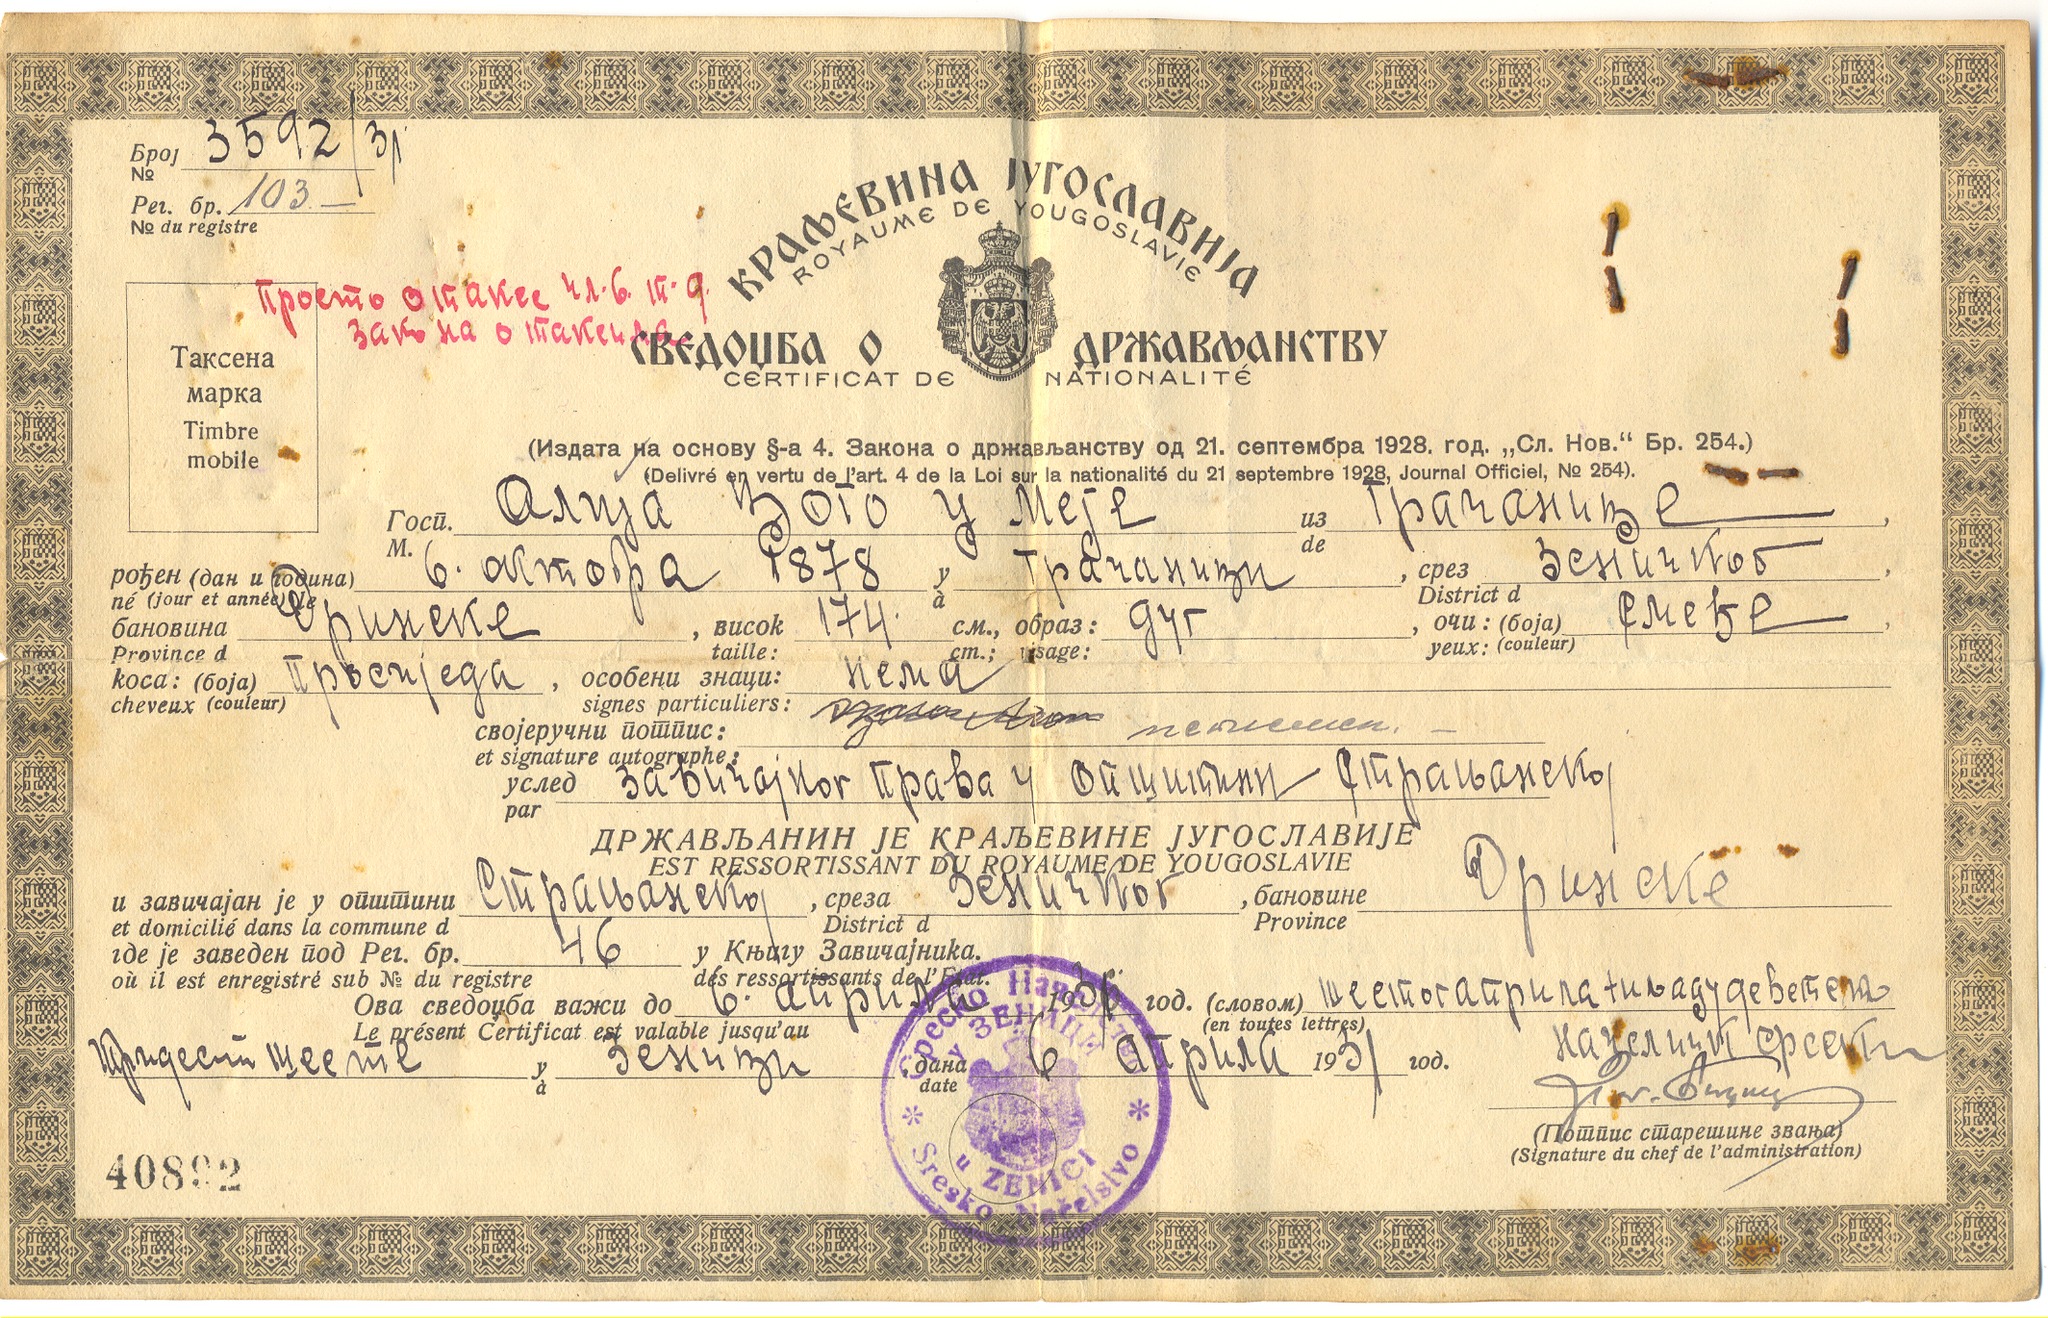 Број 3592/31
№
Рег. бр. 103.—
№ du registre
КРАЉЕВИНА ЈУГОСЛАВИЈА
ROYAUME DE YOUGOSLAVIE
просто о таксе чл. 6. т. 9.
закона о таксама
СВЕДОЏБА О ДРЖАВЉАНСТВУ
CERTIFICAT DE NATIONALITÉ
Таксена
марка
Timbre
mobile
(Издата на основу §-а 4. Закона о држављанству од 21. септембра 1928. год. „Сл. Нов.“ Бр. 254.)
(Delivré en vertu de l’art. 4 de la Loi sur la nationalité du 21 septembre 1928, Journal Officiel, № 254).
Госп. Алија Ђого у Меје из Грачанице,
M. de
рођен (дан и година) 6. октобра 1878 у Грачаници, срез Зеничког,
né (jour et année) le à District d
бановина Дринске, висок 174. см., образ: дуг, очи: (боја) смеђе,
Province d taille: cm.; visage: yeux: (couleur)
коса: (боја) просиједа, особени знаци: нема
cheveux (couleur) signes particuliers:
својеручни потпис: неписмен. —
et signature autographe:
услед завичајног права у општини Страњанској
par
ДРЖАВЉАНИН ЈЕ КРАЉЕВИНЕ ЈУГОСЛАВИЈЕ
EST RESSORTISSANT DU ROYAUME DE YOUGOSLAVIE
и завичајан је у општини Страњанској, среза Зеничког, бановине Дринске
et domicilié dans la commune d District d Province
где је заведен под Рег. бр. 46 у Књигу Завичајника.
où il est enregistré sub № du registre des ressortissants de l’Etat.
Ова сведоџба важи до 6. априла 1936. год. (словом) шестог априла тиљаду деветста
Le présent Certificat est valable jusqu’au (en toutes lettres)
тридесет шесте у Зеници дана 6 априла 1931 год. начелник среski
à date
(Потпис старешине звања)
(Signature du chef de l’administration)
40892
Среско Начелство
у ЗЕНИЦИ
u ZENICI
Sresko Načelstvo